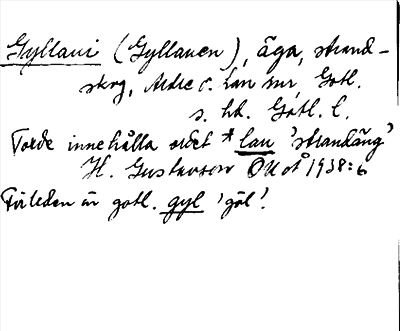 Gyllaui (Gyllauen), äga, strand-
skog, Atlre o. Lau snr, Gotl.
s. hd. Gotl. l.
Torde innehålla ordet *lau 'strandäng'
H. Gustavson ÖUoÅ 1938:6
Förleden är gotl. gyl 'göl'.